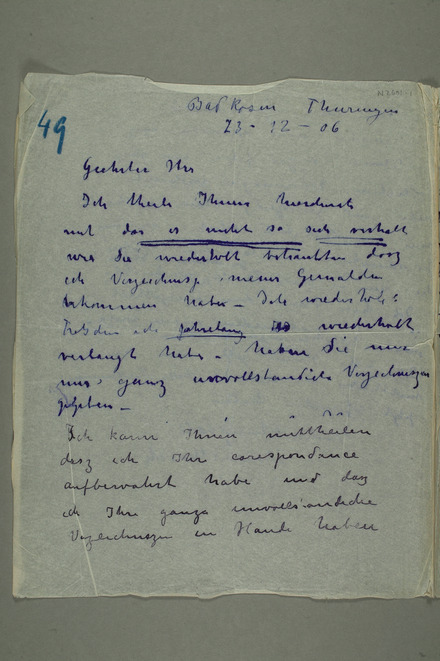 49
Bad Kosen Thuringen
23-12-06.
Geehrter Herr
Ich theile Ihnen hierdurch
mit das es nicht so sich verhalt
wie Sie wiederholt behaubten dasz
ich Verzeichnisse meiner Gemalden
bekommen habe - Ich wiederhole:
Trotzdem ich jahrelang wiederholt
verlangt habe - haben Sie mir
nur ganz unvollstandiche Verzeichnissen
gegeben -
Ich kann Ihnen mittheilen
dasz ich Ihr corespondance
aufbewahrt habe und dasz
ich Ihre ganze unvollstandiche
Verzeichnissen in Hande haben